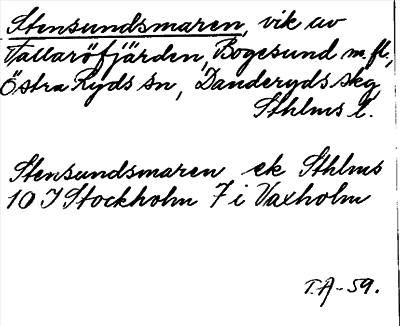 Stensundsmaren, vik av
Tallaröfjärden, Bogesund m.fl.,
Östra Ryds sn, Danderyds skg
Sthlms l.
Stensundsmaren ek Sthlms
10 I Stockholm 7 i Vaxholm
T.A-59.